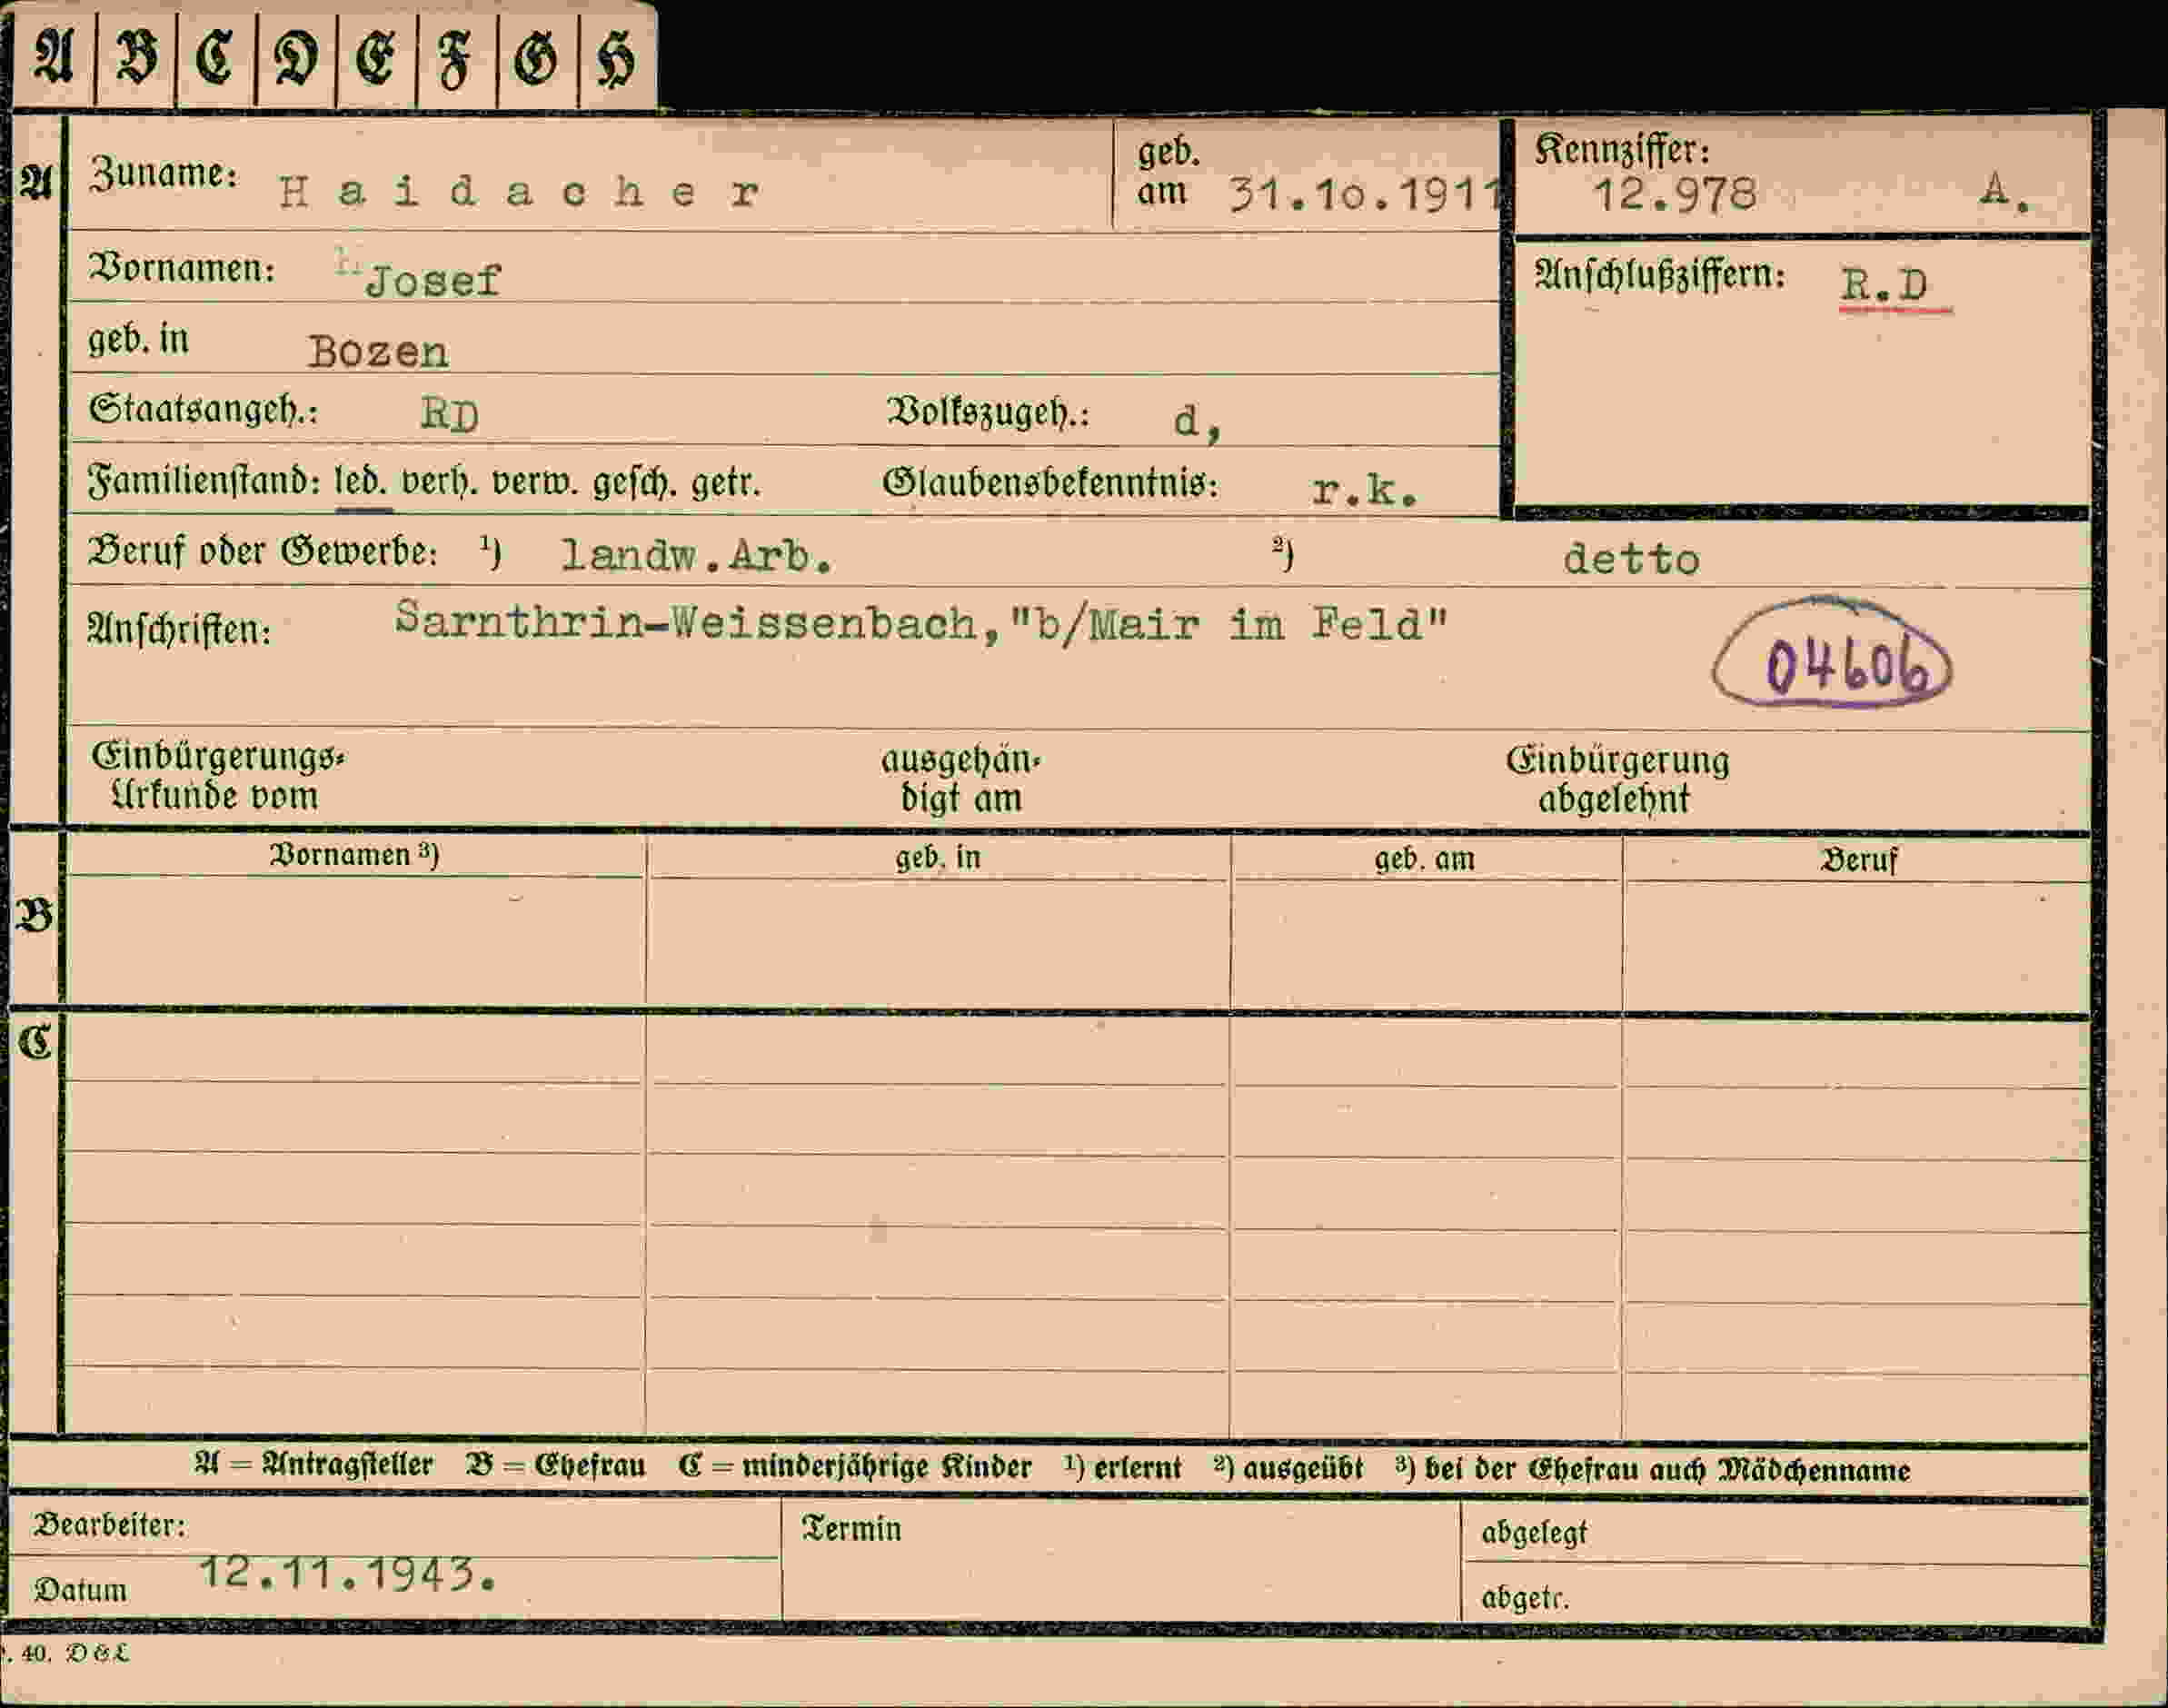 A B C D E F G H
A Zuname: Haidacher geb. am 31.10.1911 Kennziffer: 12.978 A.
Vornamen: Josef Anschlußziffern: R.D
geb. in Bozen
Staatsangeh.: RD Volkszugeh.: d,
Familienstand: led. verh. verw. gesch. getr. Glaubensbekenntnis: r.k.
Beruf oder Gewerbe: ¹) landw.Arb. ²) detto
Anschriften: Sarnthrin-Weissenbach,"b/Mair im Feld"
04606
Einbürgerungs- ausgehän- Einbürgerung
Urkunde vom digt am abgelehnt
Vornamen ³) geb. in geb. am Beruf
B
C
A = Antragsteller B = Ehefrau C = minderjährige Kinder ¹) erlernt ²) ausgeübt ³) bei der Ehefrau auch Mädchenname
Bearbeiter: Termin abgelegt
Datum 12.11.1943. abgetr.
. 40. D&L